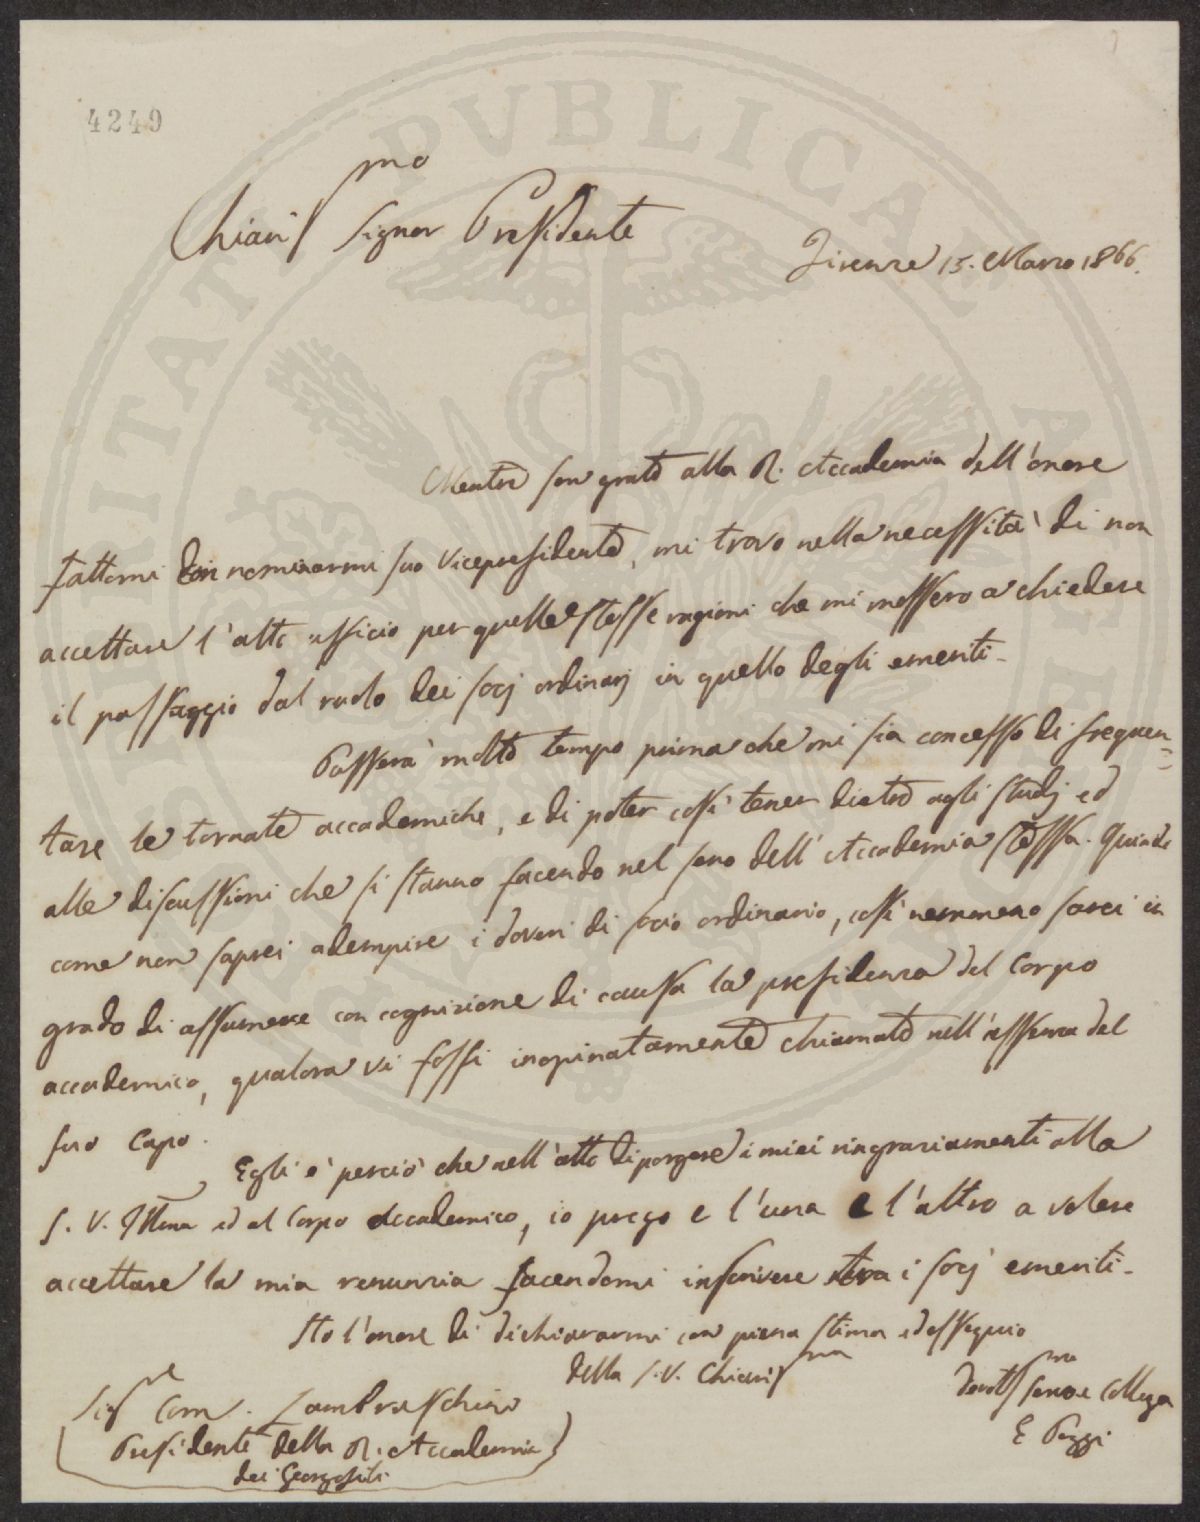 4249
Chiariss.mo Signor Presidente
Firenze 15. Marzo 1866.
Mentre son grato alla R. Accademia dell'onore
fattomi nominarmi suo Vicepresidente, mi trovo nella necessità di non
accettare l'alto ufficio per quelle stesse ragioni che mi messero a chiedere
il passaggio dal ruolo dei socj ordinarj in quello degli emeriti.
Passerà molto tempo prima che mi sia concesso di frequen=
tare le tornate accademiche, e di poter così tener dietro agli studj ed
alle discussioni che si stanno facendo nel seno dell'Accademia stessa. Quindi
come non saprei adempire i doveri di socio ordinario, così nemmeno sarei in
grado di assumere con cognizione di causa la presidenza del Corpo
accademico, qualora vi fossi inopinatamente chiamato nell'assenza del
suo Capo.
Egli è perciò che nell'atto di porgere i miei ringraziamenti alla
S. V. Illma ed al Corpo Accademico, io prego e l'una e l'altro a volere
accettare la mia renunzia facendomi inscrivere tra i socj emeriti.
Ho l'onore di dichiararmi con piena stima ed ossequio
della S. V. Chiariss.ma
devotiss.mo Collega
E Poggi
Sig.r Com. Lambruschini
Presidente della R. Accademia
dei Georgofili